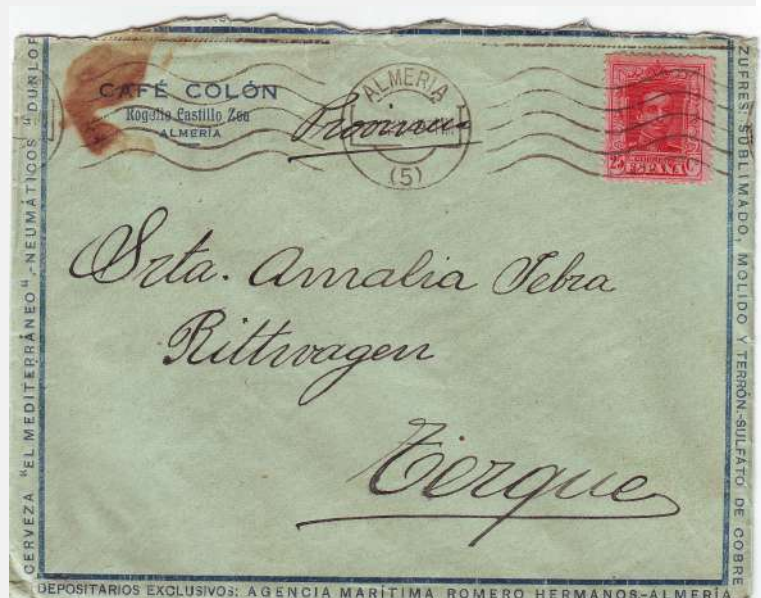 CAFÉ COLÓN
Rogelio Castillo Zea
ALMERÍA
Provincia
ALMERIA
(5)
25 Cs
CORREOS
ESPAÑA
Srta. Amalia Tebra
Rittwagen
Terque
CERVEZA "EL MEDITERRÁNEO".-NEUMÁTICOS "DUNLOP
ZUFRES: SUBLIMADO, MOLIDO Y TERRÓN.-SULFATO DE COBRE
DEPOSITARIOS EXCLUSIVOS: AGENCIA MARÍTIMA ROMERO HERMANOS-ALMERÍA